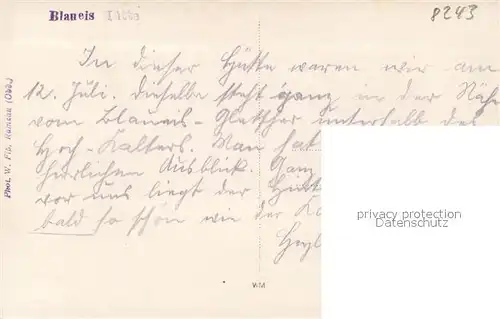 Blaueis Hütte
8243
In dieser Hütte waren wir am
12. Juli. Dieselbe steht ganz in der Näh
vom Blaueis-Gletscher unterhalb des
Hoch-Kalters. Man hat
herrlichen Ausblick. Ganz
vor uns liegt der
bald so schön wie der
Phot. W. Fis. Ramsau (Obb.)
privacy protection
Datenschutz
WM